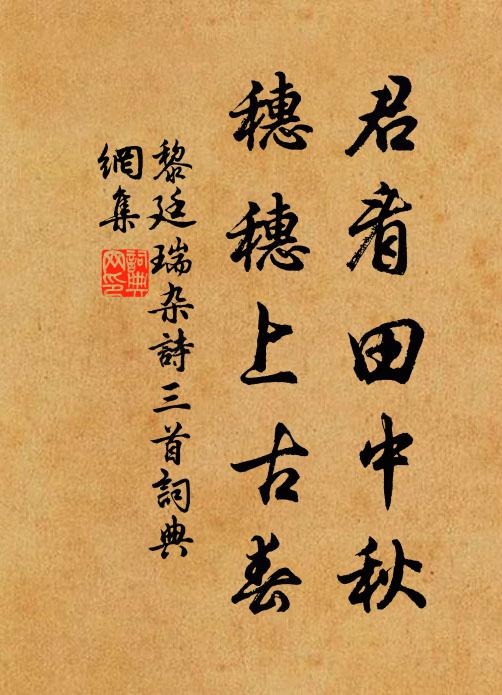 君看田中秋
穗穗上古春
黎廷瑞杂詩三首詞典
網集
詞典
网印